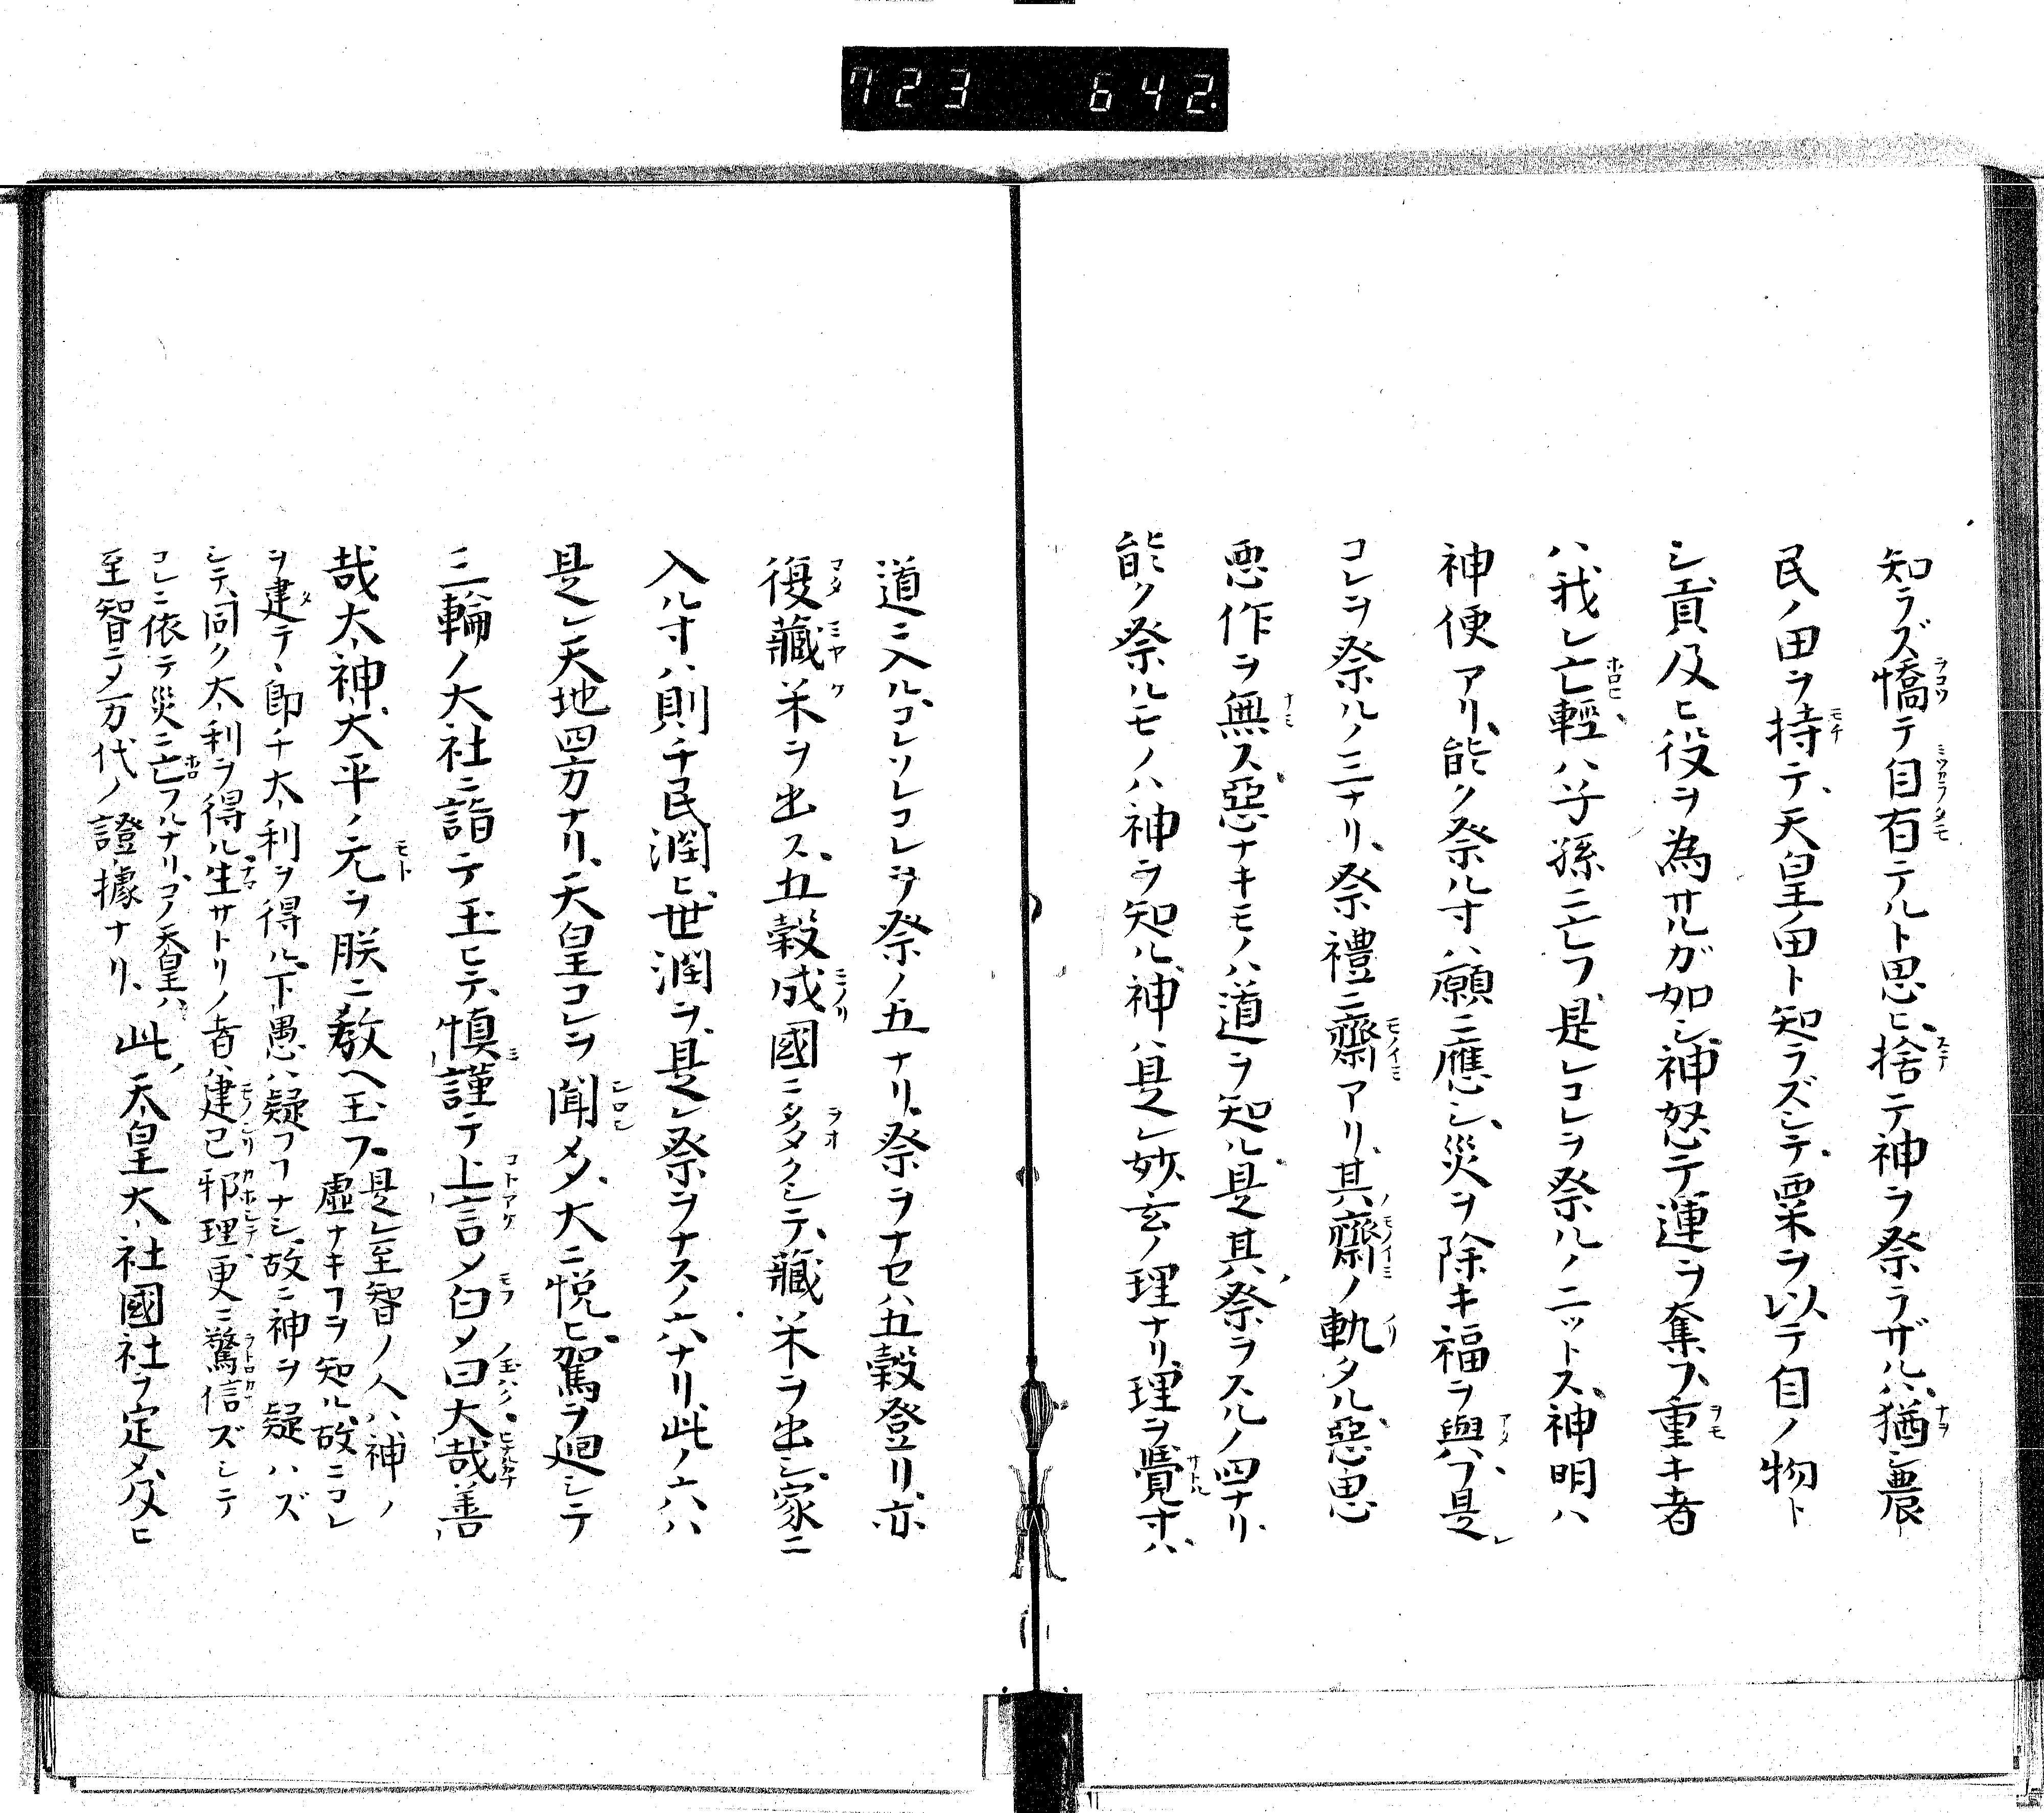 723 642.
知ラズ憍テ自有テルト思ヒ、捨テ神ヲ祭ラザルハ、猶シ農
民ノ田ヲ持テ、天皇ノ田ト知ラズシテ、粟ヲ以テ自ノ物ト
シ、貢及ヒ役ヲ為サルガ如シ、神怒テ運ヲ奪フ、重キ者
ハ我レ亡ヒ、輕ハ子孫ニ亡フ、是レコレヲ祭ルノ二ットス、神明ハ
神便アリ、能ク祭ル寸ハ願ニ應シ、災ヲ除キ福ヲ與フ、是レ
コレヲ祭ルノ三ナリ、祭禮ニ齋アリ、其ノ齋ノ軌タル、惡思
悪作ヲ無ス、惡ナキモノハ道ヲ知ル、是其ノ祭ヲスルノ四ナリ、
能ク祭ルモノハ神ヲ知ル、神ハ是レ妙玄ノ理ナリ、理ヲ覺寸ハ、
道ニ入ル、コレソレコレヲ祭ノ五ナリ、祭ヲナセハ五穀登リ、亦
復藏米ヲ出ス、五穀成國ニ多クシテ、藏米ヲ出シ、家ニ
入ル寸ハ、則チ民潤ヒ、世潤ヲ、是レ祭ヲナスノ六ナリ、此ノ六ハ
是レ天地四方ナリ、天皇コレヲ聞メタ、大ニ悦ヒ、駕ヲ廻シテ
三輪ノ大社ニ詣テ玉ヒテ、慎謹テ上言メ白メ曰大哉善
哉太神、大平ノ元ヲ朕ニ教ヘ玉フ、
是レ至智ノ人ハ、神ノ
虚ナキヿヲ知ル、故ニコレ
ヲ建テ、即チ大利ヲ得ル、下愚ハ疑フヿナシ、故ニ神ヲ疑ハズ
シテ、同ク大利ヲ得ル、生サトリノ者ハ、建己邪理更ニ驚信ズシテ
コレニ依テ災ニ亡フルナリ、コノ天皇ハ、
至智ニメ万代ノ證據ナリ、
此ノ天皇大社國社ヲ定メ、及ヒ